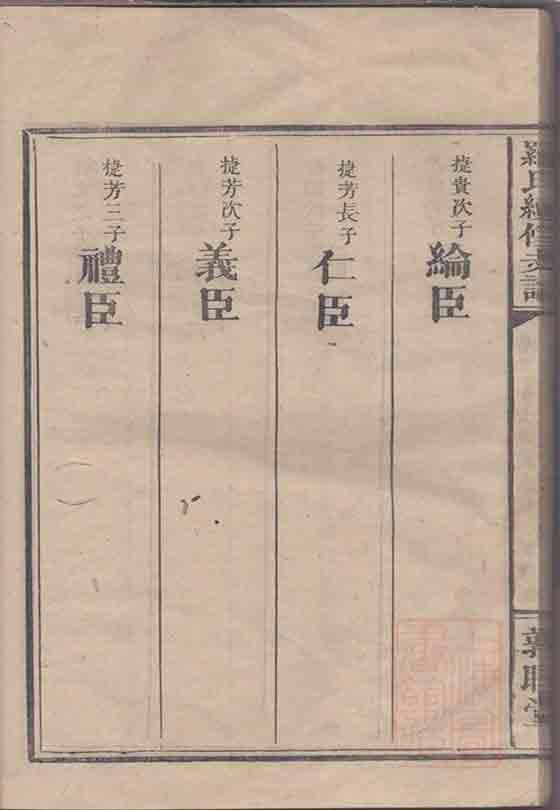 羅氏續修支譜
敦睦堂
捷貴次子
綸臣
捷芳長子
仁臣
捷芳次子
義臣
捷芳三子
禮臣